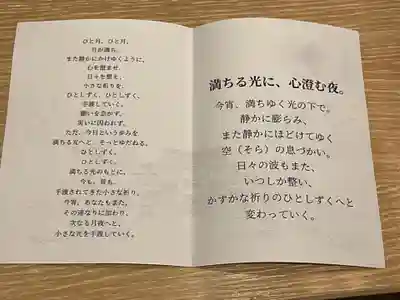 ひと月、ひと月、
月が満ち、
また静かにかけゆくように、
心を澄ませ、
日々を整え、
小さな祈りを、
ひとしずく、ひとしずく、
手渡していく。
願いを急がず、
実いに囚われず、
ただ、今日という歩みを
満ちる夜へと、そっとゆだねる。
ひとしずく。
ひとしずく。
満ちる光のもとに、
今も、昔も、
手渡されてきた小さな祈り。
今宵、あなたもまた、
その連なりに加わり、
次なる月夜へと、
小さな光を手渡していく。
満ちる光に、心澄む夜。
今宵、満ちゆく光の下で。
静かに膨らみ、
また静かにほどけてゆく
空（そら）の息づかい。
日々の波もまた、
いつしか整い、
かすかな祈りのひとしずくへと
変わっていく。